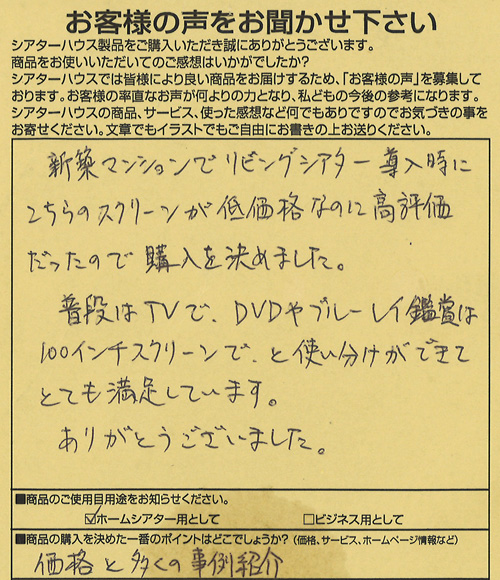 お客様の声をお聞かせ下さい
シアターハウス製品をご購入いただき誠にありがとうございます。
商品をお使いいただいてのご感想はいかがでしたか?
シアターハウスでは皆様により良い商品をお届けするため、「お客様の声」を募集して
おります。お客様の率直なお声が何よりの力となり、私どもの今後の参考になります。
シアターハウスの商品、サービス、使った感想など何でもありですのでお気づきの事を
お寄せください。文章でもイラストでもご自由にお書きの上お送りください。
新築マンションでリビングシアター導入時に
こちらのスクリーンが低価格なのに高評価
だったので購入を決めました。
普段はTVで、DVDやブルーレイ鑑賞は
100インチスクリーンで、と使い分けができて
とても満足しています。
ありがとうございました。
■商品のご使用目用途をお知らせください。
☑ホームシアター用として □ビジネス用として
■商品の購入を決めた一番のポイントはどこでしょうか?(価格、サービス、ホームページ情報など)
価格と多くの事例紹介